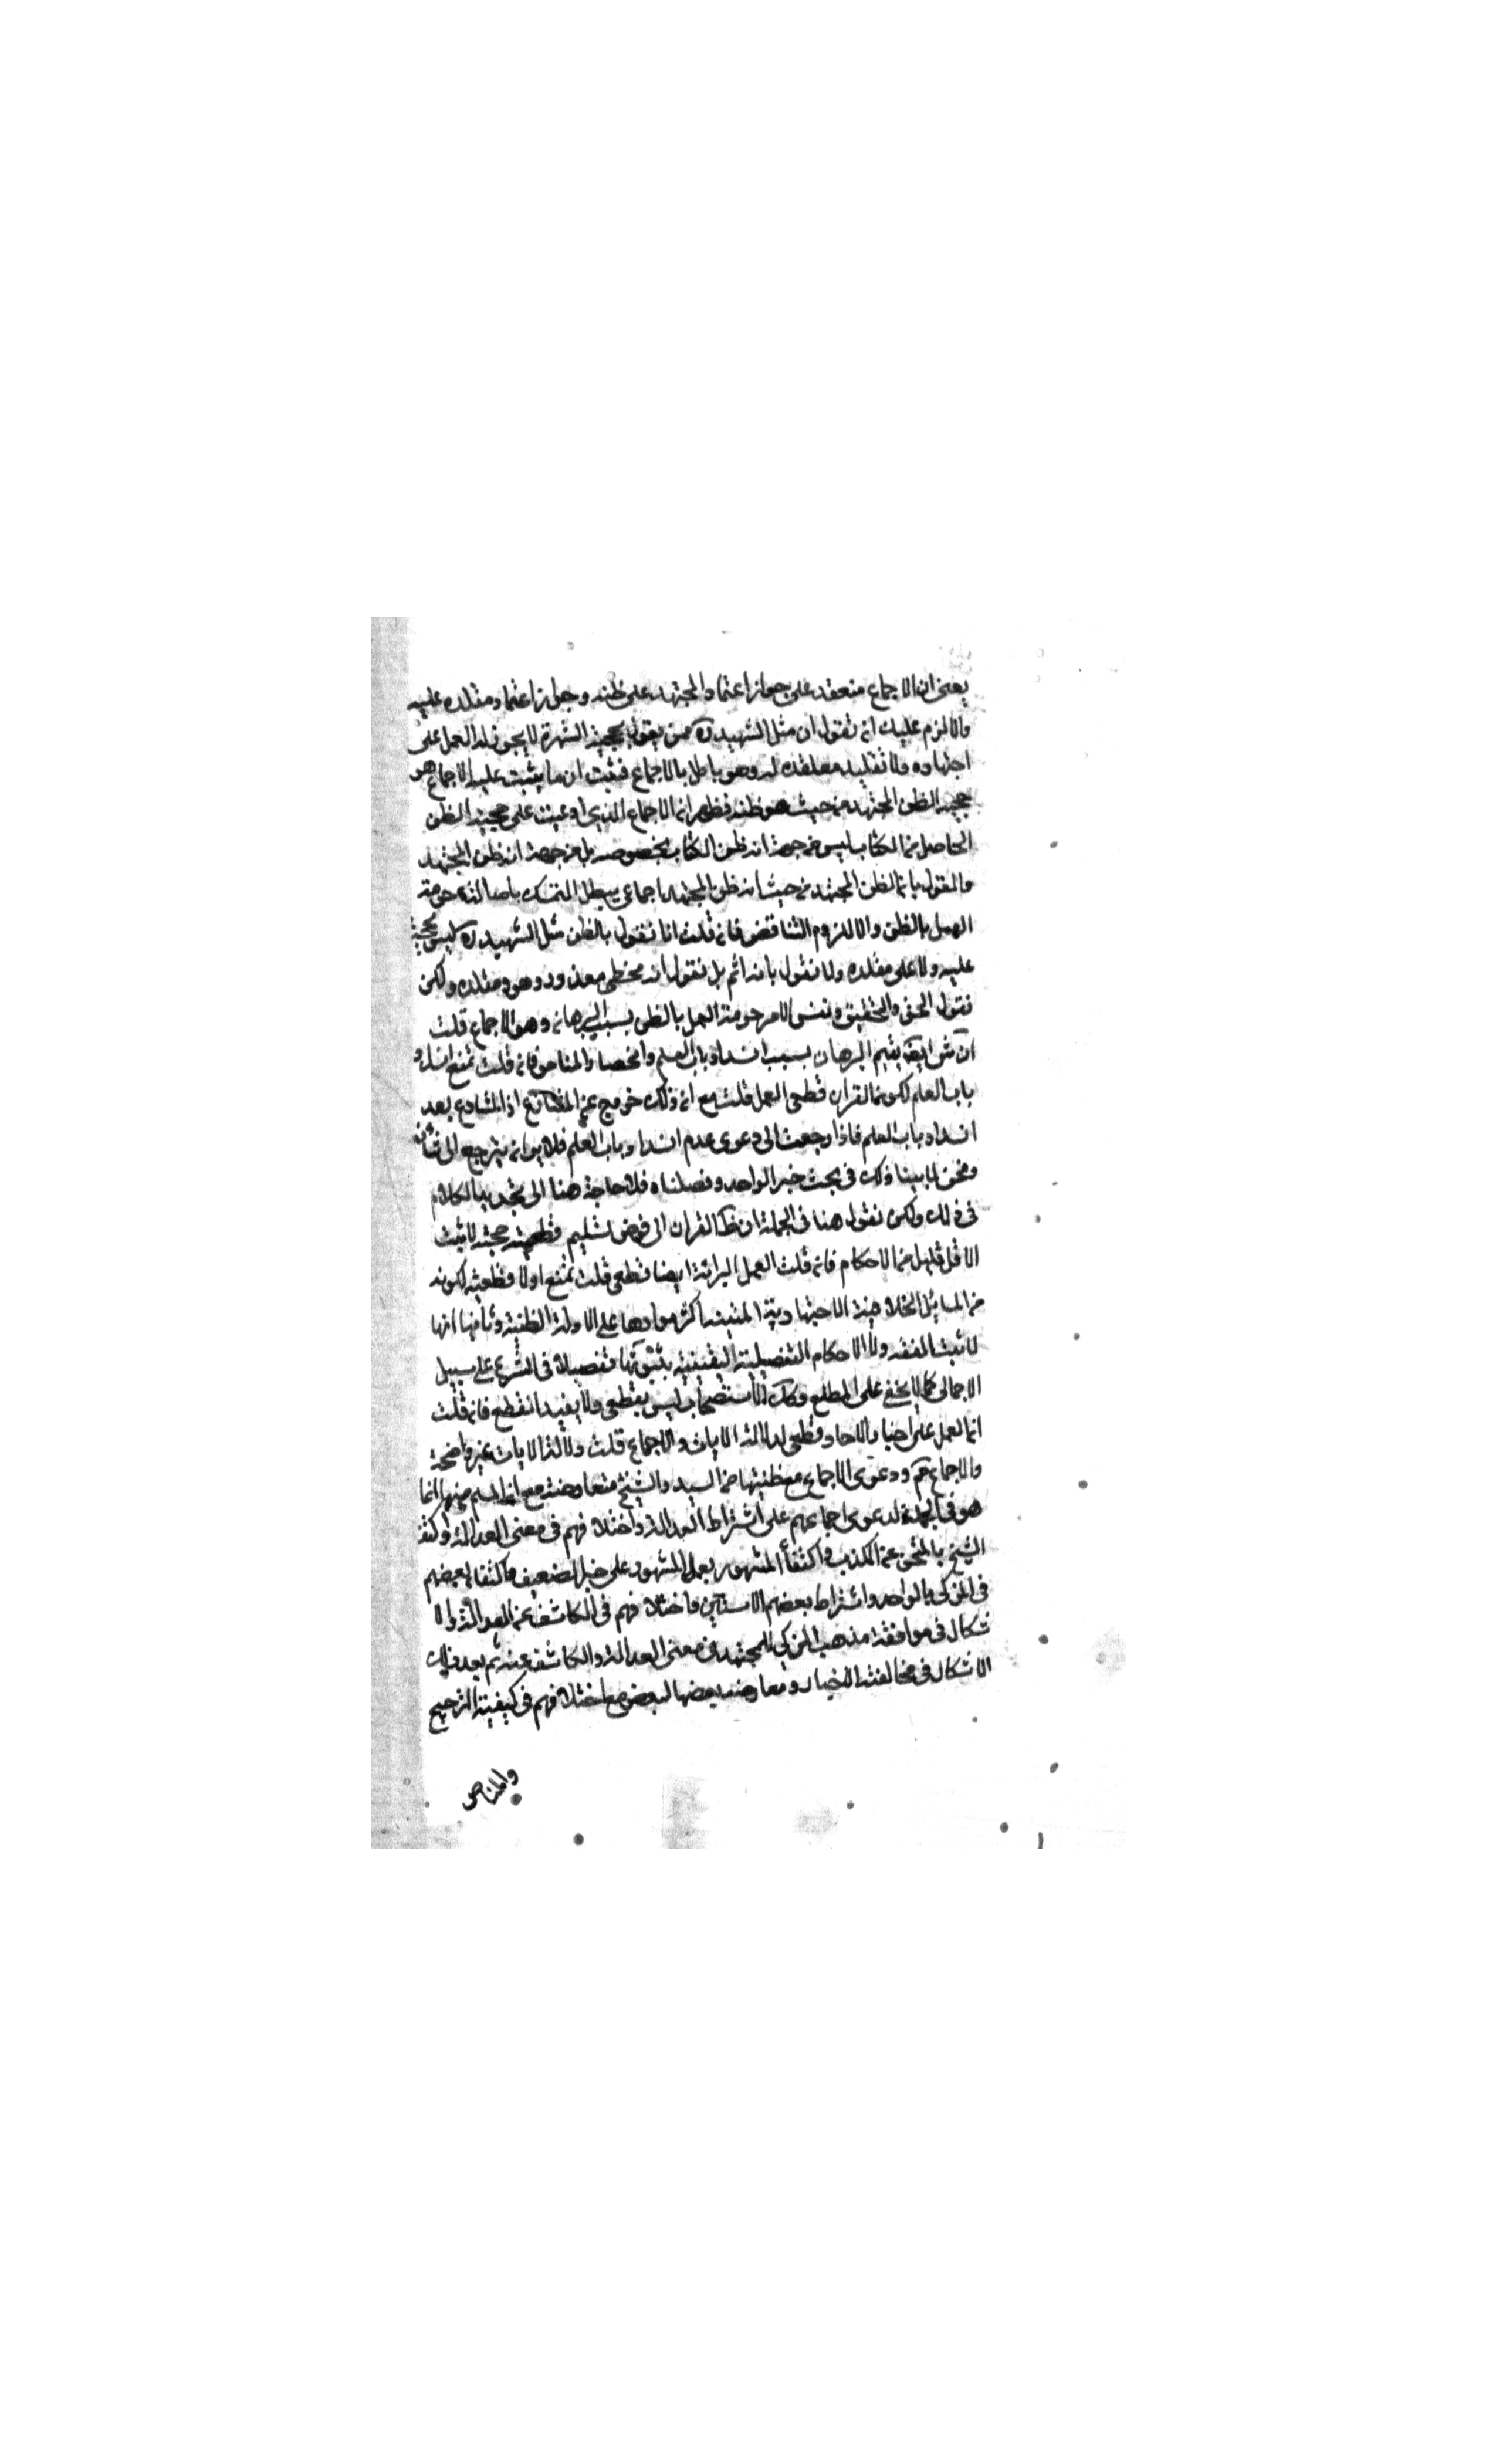 يعنى ان الاجماع منعقد على جواز اعتماد المجتهد على ظنه وجواز اعتماد مقلده عليه
والا لزم عليك ان تقول ان مثل الشهيد ره ممن يقول بحجية الشهرة لا يجوز له العمل على
اجتهاده ولا تقليد مقلده له وهو باطل بالاجماع فثبت ان ما يثبت عليه الاجماع هو
حجية الظن المجتهد من حيث هو ظنه فظهر ان الاجماع الذي ادعيت على حجية الظن
الحاصل من الكتاب ليس من جهة انه ظن الكتاب بخصوصه بل من جهة انه ظن المجتهد
والقول بان الظن المجتهد من حيث انه ظن المجتهد اجماعي يبطل التمسك باصالة حرمة
العمل بالظن والا لزوم التناقض فان قلت انا نقول بالظن مثل الشهيد ره ليس بحجة
عليه ولا على مقلده ولا نقول بانه اثم بل نقول انه مخطى معذور هو ومقلده ولكن
نقول الحق والتحقيق ونفس الامر حرمة العمل بالظن بسبب البرهان وهو الاجماع قلت
الآن ش ايضا يقيم البرهان بسبب انسداد باب العلم وانحصار المناص فان قلت نمنع انسداد
باب العلم لكون القران قطعى العمل قلت مع ان ذلك خروج عن المتنازع اذ المتنازع بعد
انسداد باب العلم فاذا رجعت الى دعوى عدم انسداد باب العلم فلا بد ان يرجع الى شأن
ونحن لما بينا ذلك في بحث خبر الواحد وفصلناه فلا حاجة هنا الى تجديد الكلام
في ذلك ولكن نقول هنا في الجملة ان ظ القران الى فرض تسليم قطعية حجته لا يثبت
الا اقل قليل من الاحكام فان قلت العمل البرائة ايضا قطعى قلت نمنع اولا قطعيته لكونه
من المسايل الخلافية الاجتهادية المبنية اكثر موادها على الادلة الظنية وثانيها انها
لا تثبت الفقه ولا الاحكام التفصيلية اليقينية بثبوتها تفصيلا في الشرع على سبيل
الاجمالى كما لا يخفى على المطلع وكك الاستصحاب ليس بقطعى ولا يفيد القطع فان قلت
ان العمل على اخبار الاحاد قطعى لدلالة الايات والاجماع قلت دلالة الايات غير واضحة
والاجماع ثم ودعوى الاجماع مع ظنيتها من السيد والشيخ متعارضة مع ان المسلم منها انما
هو في الجملة لدعوى اجماعهم على اشتراط العدالة واختلافهم في معنى العدالة واكتفاء
الشيخ بالتحرز عن الكذب واكتفاء المشهور بعمل المشهور على خبر الضعيف واكتفاء بعضهم
في المزكى بالواحد واشتراط بعضهم الاثنين واختلافهم في الكاشف عن العدالة والا
شكال في موافقة مذهب المزكى للمجتهد في معنى العدالة والكاشف عنه ثم بعد ذلك
الاشكال في مخالفة الاخبار ومعارضة بعضها لبعض مع اختلافهم في كيفية الترجيح
والمناص